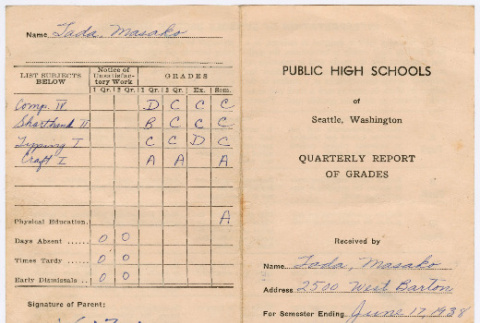 Name Tada, Masako
LIST SUBJECTS BELOW
Notice of Unsatisfactory Work
GRADES
1 Qr. 2 Qr. 1 Qr. 2 Qr. Ex. Sem.
Comp. IV D C C C
Shorthand II B C C C
Typing I C C D C
Craft I A A A
Physical Education A
Days Absent ...... 0 0
Times Tardy ...... 0 0
Early Dismissals .. 0 0
Signature of Parent:
PUBLIC HIGH SCHOOLS
of
Seattle, Washington
QUARTERLY REPORT
OF GRADES
Received by
Name Tada, Masako
Address 2500 West Barton
For Semester Ending June 17, 1938